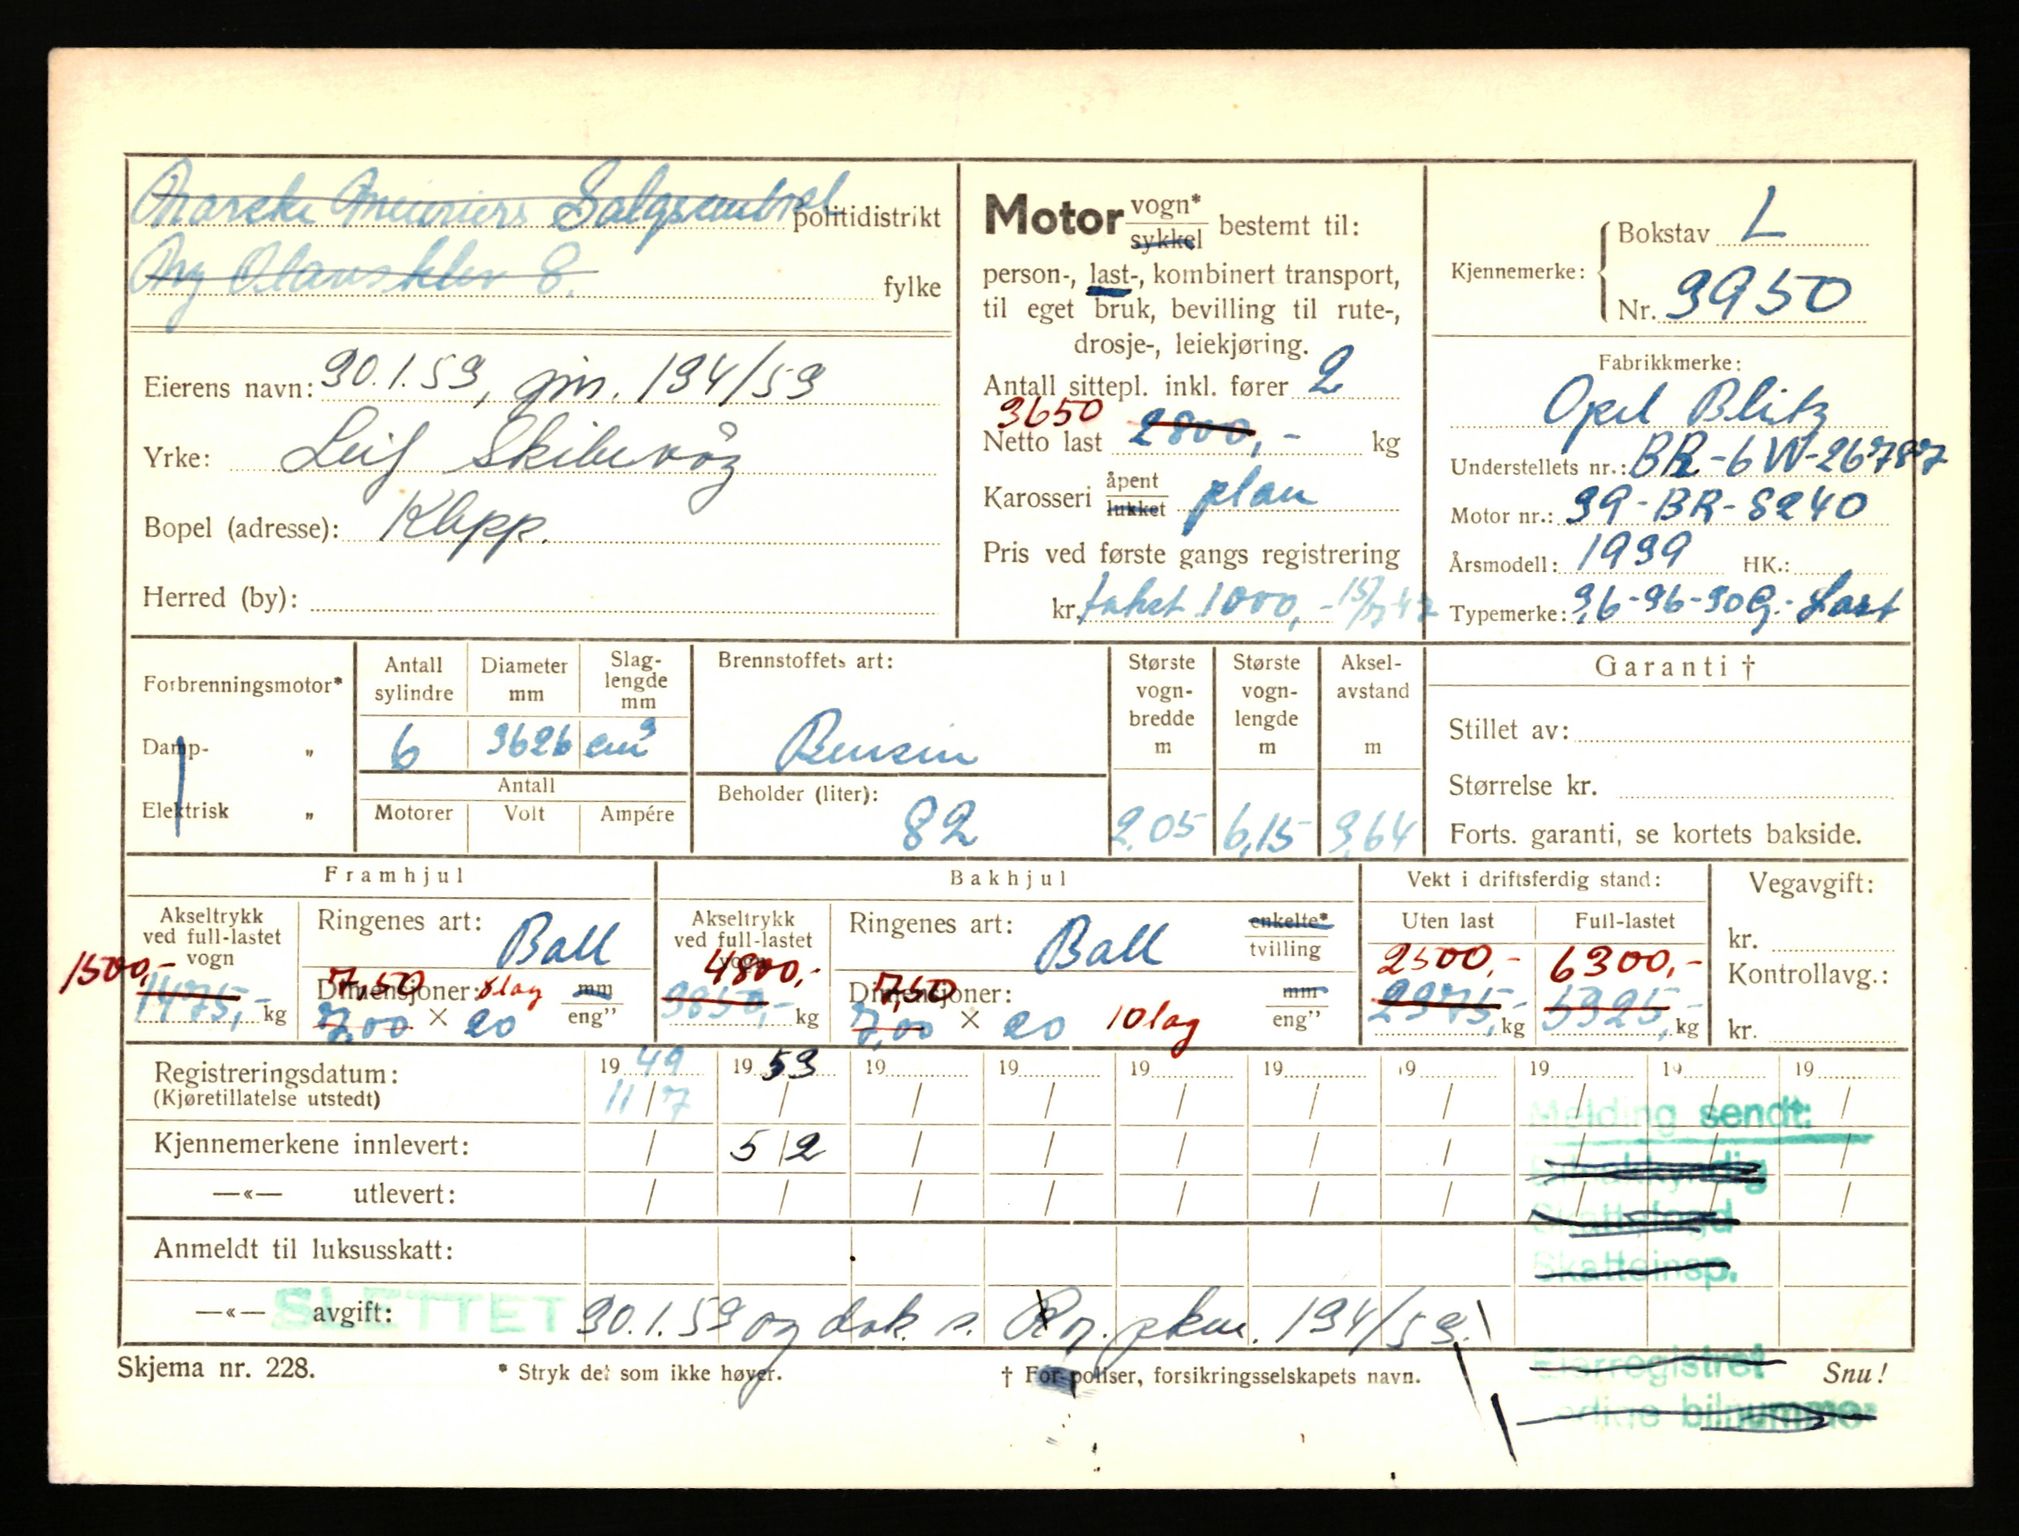 Norske Meieriers Salgsentral politidistrikt
Ny Olavsklev 8. fylke
Eierens navn: 30.1.53, jnr. 134/53
Yrke: Leif
Bopel (adresse): Klepp.
Herred (by):
Motor vogn* sykkel bestemt til:
person-, last-, kombinert transport,
til eget bruk, bevilling til rute-,
drosje-, leiekjøring.
Antall sittepl. inkl. fører 2
3650
Netto last 2800,- kg
Karosseri åpent lukket plan
Pris ved første gangs registrering
kr. takst 1000,-
Kjennemerke: Bokstav L
Nr. 3950
Fabrikkmerke:
Opel Blitz
Understellets nr.: BR-6W-26787
Motor nr.: 39-BR-8240
Årsmodell: 1939 HK.:
Typemerke: 3,6-36-30G.- Last
Forbrenningsmotor*
Damp- „
Elektrisk „
Antall sylindre Diameter mm Slag-lengde mm
6 3626 cm³
Antall
Motorer Volt Ampére
Brennstoffets art:
Bensin
Beholder (liter):
82
Største vogn-bredde m
2,05
Største vogn-lengde m
6,15
Aksel-avstand m
3,64
Garanti †
Stillet av:
Størrelse kr.
Forts. garanti, se kortets bakside.
Framhjul
Akseltrykk ved full-lastet vogn
1500,-
1475,- kg
Ringenes art: Ball
7,50 8lag
Dimensjoner: mm
7,00 × 20 eng"
Bakhjul
Akseltrykk ved full-lastet vogn
4800,-
3850,- kg
Ringenes art: Ball enkelte* tvilling
750
Dimensjoner: mm
7,00 × 20 10lag eng"
Vekt i driftsferdig stand:
Uten last Full-lastet
2500,- 6300,-
2375,- kg 5325,- kg
Vegavgift:
kr.
Kontrollavg.:
kr.
Registreringsdatum: 19 49 19 53 19 19 19 19 19 19 19 19
(Kjøretillatelse utstedt) 11/7 / / / / / / / / /
Melding sendt:
Kjennemerkene innlevert: / 5/2 / / / / / / / /
Sakkyndig
—«— utlevert: / / / / / / / / / /
Skattefogd
Anmeldt til luksusskatt:
Skatteinsp.
—«— avgift: SLETTET 30.1.53 og dok. s. Rog. pkm. 134/53.
Skjema nr. 228. * Stryk det som ikke høyer. † For poliser, forsikringsselskapets navn. Snu!
Eierregistret
Ledige bilnummer